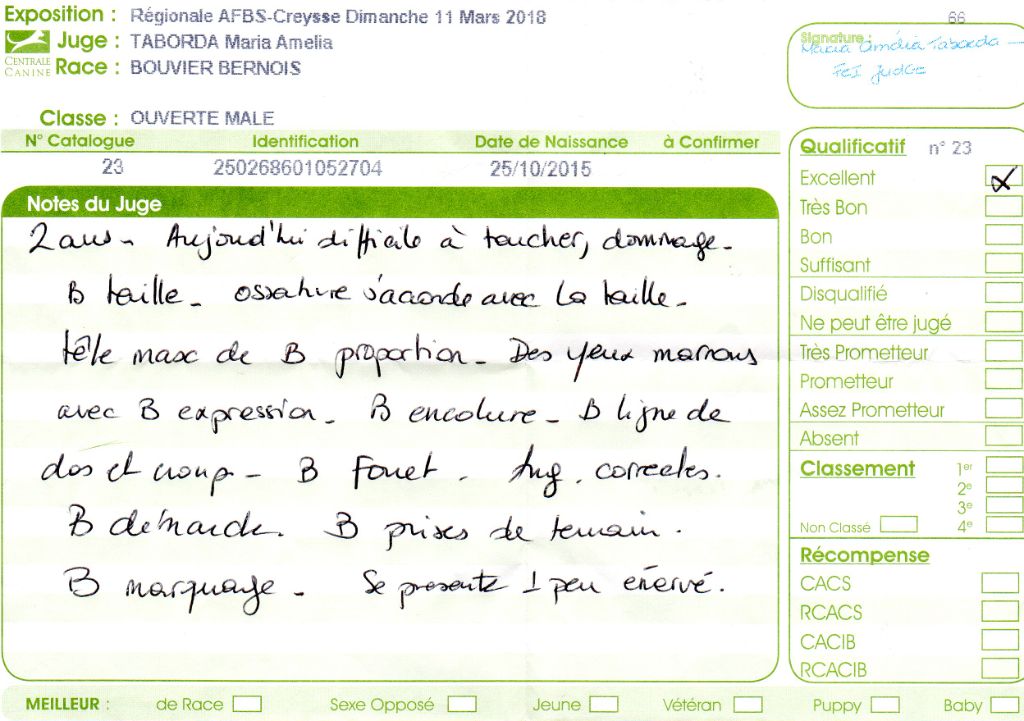 Exposition : Régionale AFBS-Creysse Dimanche 11 Mars 2018
66
Juge : TABORDA Maria Amelia
CENTRALE CANINE
Race : BOUVIER BERNOIS
Signature :
Maria Amélia Taborda
FCI Judge
Classe : OUVERTE MALE
N° Catalogue Identification Date de Naissance à Confirmer
23 250268601052704 25/10/2015
Notes du Juge
2 ans - Aujourd'hui difficile à toucher, dommage -
B taille - ossature s'accorde avec la taille -
tête masc de B proportion - Des yeux marrons
avec B expression - B encolure - B ligne de
dos et croup - B Fouet . Ang . correctes .
B démarche . B prises de terrain .
B marquage - Se presente 1 peu énervé .
Qualificatif n° 23
Excellent X
Très Bon
Bon
Suffisant
Disqualifié
Ne peut être jugé
Très Prometteur
Prometteur
Assez Prometteur
Absent
Classement 1er
2e
3e
Non Classé 4e
Récompense
CACS
RCACS
CACIB
RCACIB
MEILLEUR : de Race Sexe Opposé Jeune Vétéran Puppy Baby